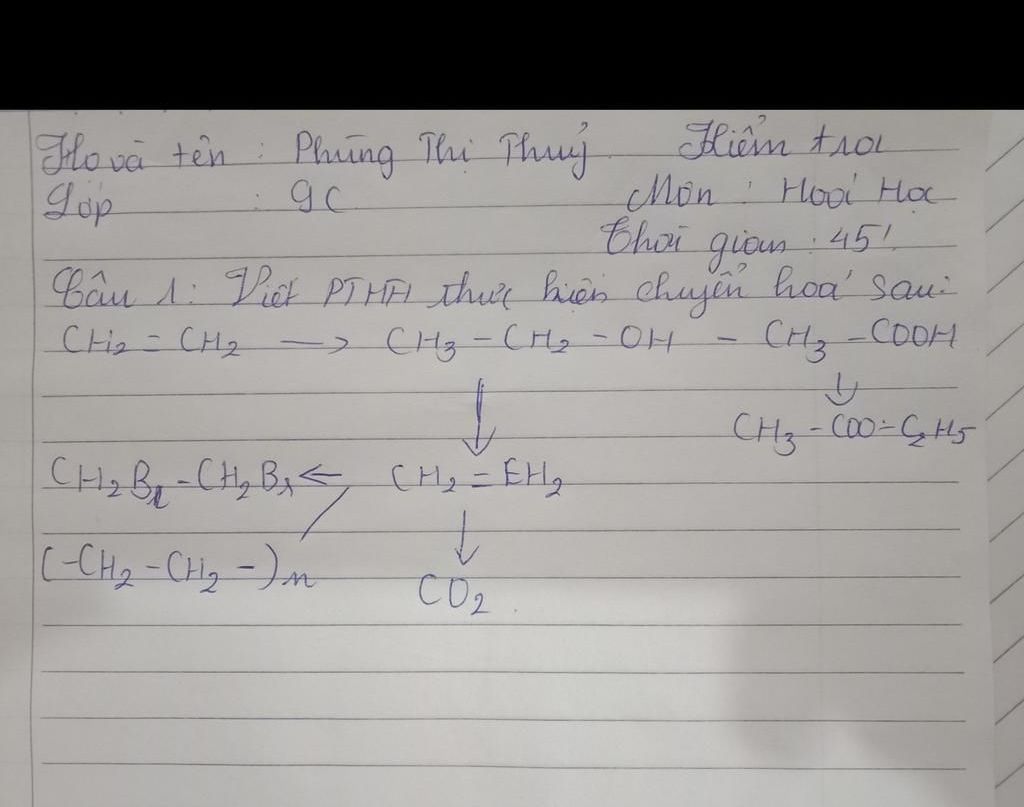 Họ và tên : Phùng Thị Thuỷ Kiểm tra
Lớp : 9C Môn : Hoá Học
Thời gian : 45'.
Câu 1: Viết PTHH thực hiện chuyển hoá sau:
CH2 = CH2 → CH3 - CH2 - OH - CH3 - COOH
↓ ↓
CH3 - COO - C2H5
CH2Br - CH2Br ← CH2 = CH2
↓
(-CH2 - CH2 -)n CO2